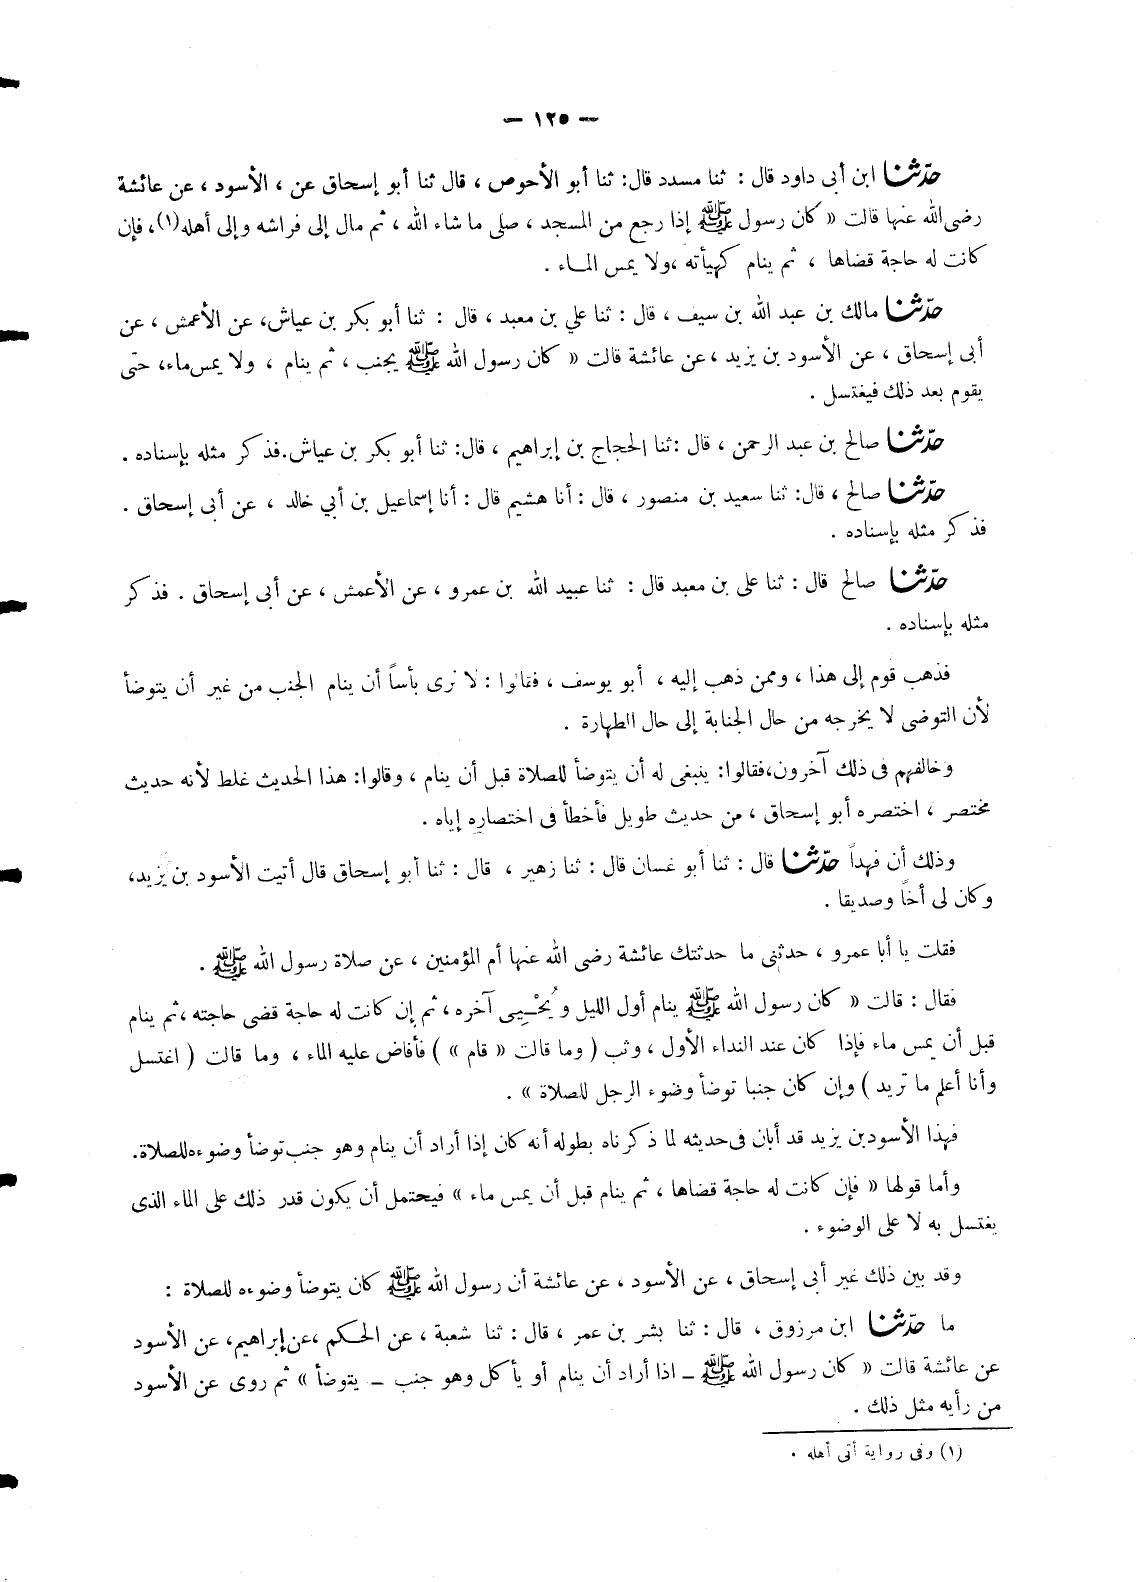 — ١٢٥ —
حدّثنا ابن أبى داود قال : ثنا مسدد قال: ثنا أبو الأحوص ، قال ثنا أبو إسحاق عن ، الأسود ، عن عائشة
رضى الله عنها قالت « كان رسول ﷺ إذا رجع من المسجد ، صلى ما شاء الله ، ثم مال إلى فراشه وإلى أهله(١)، فإن
كانت له حاجة قضاها ، ثم ينام كهيأته ،ولا يمس المـاء .
حدّثنا مالك بن عبد الله بن سيف ، قال : ثنا علي بن معبد ، قال : ثنا أبو بكر بن عياش، عن الأعمش ، عن
أبى إسحاق ، عن الأسود بن يزيد ،عن عائشة قالت « كان رسول الله ﷺ يجنب ، ثم ينام ، ولا يمس ماء، حتى
يقوم بعد ذلك فيغتسل .
حدّثنا صالح بن عبد الرحمن ، قال :ثنا الحجاج بن إبراهيم ، قال: ثنا أبو بكر بن عياش.فذكر مثله بإسناده .
حدّثنا صالح ، قال: ثنا سعيد بن منصور ، قال : أنا هشيم قال : أنا إسماعيل بن أبي خالد ، عن أبى إسحاق .
فذكر مثله بإسناده .
حدّثنا صالح قال : ثنا على بن معبد قال : ثنا عبيد الله بن عمرو ، عن الأعمش ، عن أبى إسحاق . فذكر
مثله بإسناده .
فذهب قوم إلى هذا ، وممن ذهب إليه ، أبو يوسف ، فقالوا : لا نرى بأساً أن ينام الجنب من غير أن يتوضأ
لأن التوضى لا يخرجه من حال الجنابة إلى حال الطهارة .
وخالفهم فى ذلك آخرون،فقالوا: ينبغى له أن يتوضأ للصلاة قبل أن ينام ، وقالوا: هذا الحديث غلط لأنه حديث
مختصر ، اختصره أبو إسحاق ، من حديث طويل فأخطأ فى اختصاره إياه .
وذلك أن فهداً حدّثنا قال : ثنا أبو غسان قال : ثنا زهير ، قال : ثنا أبو إسحاق قال أتيت الأسود بن يزيد،
وكان لى أخاً وصديقا .
فقلت يا أبا عمرو ، حدثنى ما حدثتك عائشة رضى الله عنها أم المؤمنين ، عن صلاة رسول الله ﷺ .
فقال : قالت « كان رسول الله ﷺ ينام أول الليل ويُحْـيِـى آخره ، ثم إن كانت له حاجة قضى حاجته ،ثم ينام
قبل أن يمس ماء فإذا كان عند النداء الأول ، وثب ( وما قالت « قام » ) فأفاض عليه الماء ، وما قالت ( اغتسل
وأنا أعلم ما تريد ) وإن كان جنبا توضأ وضوء الرجل للصلاة » .
فهذا الأسودبن يزيد قد أبان فى حديثه لما ذكرناه بطوله أنه كان إذا أراد أن ينام وهو جنب توضأ وضوءه للصلاة.
وأما قولها « فإن كانت له حاجة قضاها ، ثم ينام قبل أن يمس ماء » فيحتمل أن يكون قدر ذلك على الماء الذى
يغتسل به لا على الوضوء .
وقد بين ذلك غير أبى إسحاق ، عن الأسود ، عن عائشة أن رسول الله ﷺ كان يتوضأ وضوءه للصلاة :
ما حدّثنا ابن مرزوق ، قال : ثنا بشر بن عمر ، قال : ثنا شعبة ، عن الحكم ،عن إبراهيم، عن الأسود
عن عائشة قالت « كان رسول الله ﷺ ـ اذا أراد أن ينام أو يأكل وهو جنب ـ يتوضأ » ثم روى عن الأسود
من رأيه مثل ذلك .
(١) وفى رواية أتى أهله .